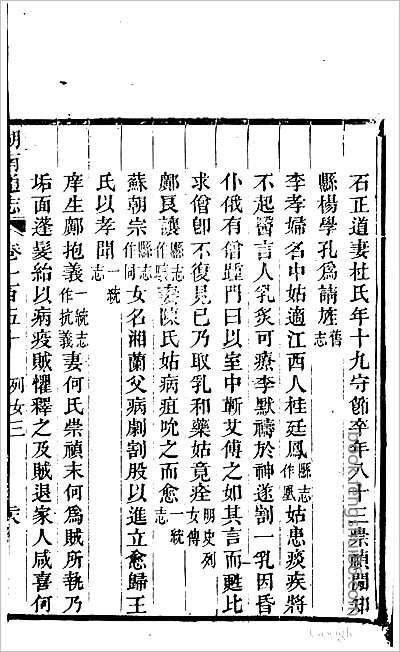 石正道妻杜氏年十九守節卒年八十二崇禎間知
縣楊學孔為請旌舊志
李孝婦名中姑適江西人桂廷鳳縣志作鳳姑患痰疾將
不起醫言人乳炙可療李默禱於神遂割一乳因昏
仆俄有僧踵門曰以室中蘄艾傅之如其言而甦比
求僧卽不復見已乃取乳和藥姑竟痊明史列女傳
鄺艮讓縣志作妻陳氏姑病疽吮之而愈一統志
蘇朝宗縣志作同女名湘蘭父病劇割股以進立愈歸王
氏以孝聞一統志
庠生鄺抱義一統志作抗義妻何氏崇禎末何為賊所執乃
垢面蓬髮紿以病疫賊懼釋之及賊退家人咸喜何
湖南通志 卷二百五十 列女三